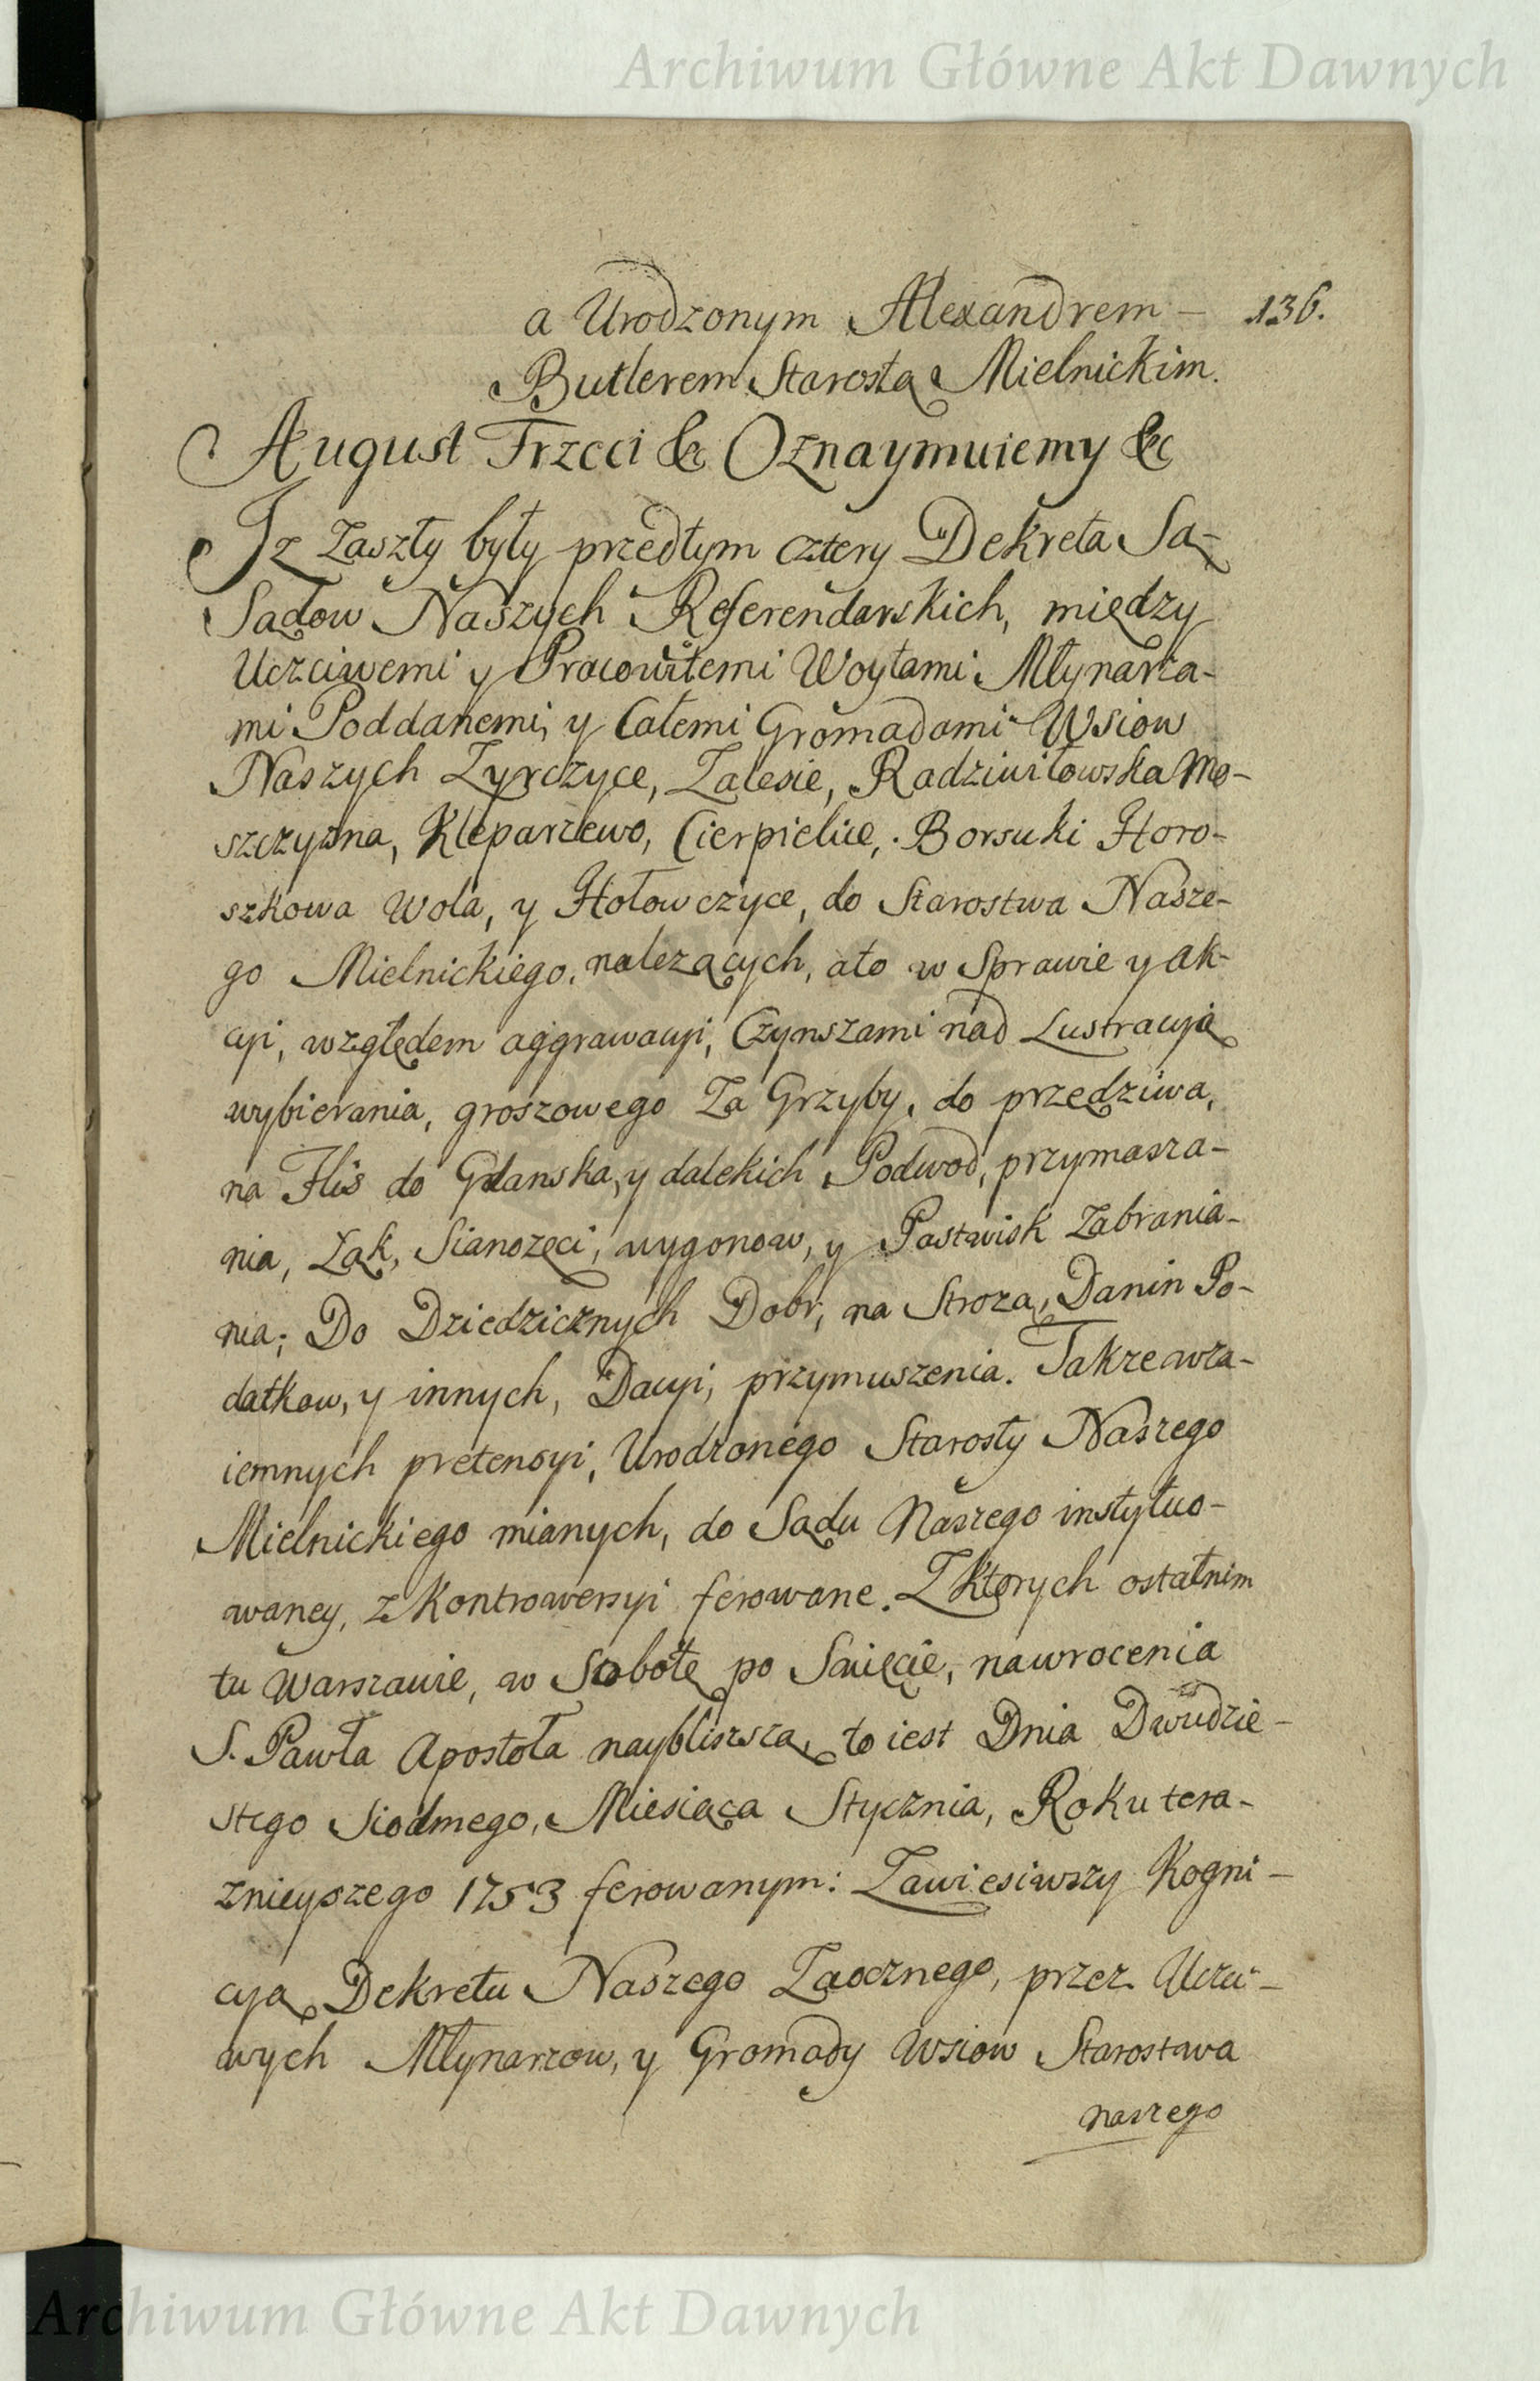 Archiwum Główne Akt Dawnych
a Urodzonym Alexandrem — 136.
Butlerem Starostą Mielnickim.
August Trzeci &c Oznaymuiemy &c
Iz Zaszły były przedtym cztery Dekreta Są-
Sądow Naszych Referendarskich, między
Uczciwemi y Pracowitemi Woytami Młynarza-
mi Poddanemi, y Całemi Gromadami Wsiow
Naszych Zyrczyce, Zalesie, Radziwiłowska Mo-
szczyzna, Kleparzewo, Cierpielice, Borsuki Horo-
szkowa Wola, y Hołowczyce, do Starostwa Nasze-
go Mielnickiego, nalezących, ato w Sprawie y Ak-
cyi, względem aggrawacyi, Czynszami nad Lustracyią
wybierania, groszowego Za Grzyby, do przędziwa,
na Flis do Gdanska, y dalekich Podwod, przymusza-
nia, Łąk, Sianozęci, wygonow, y Pastwisk Zabrania-
nia; Do Dziedzicznych Dobr, na Strozą, Danin Po-
datkow, y innych, Dacyi, przymuszenia. Takze wza-
iemnych pretensyi, Urodzonego Starosty Naszego
Mielnickiego mianych, do Sądu Naszego instytuo-
waney, z Kontrowersyi ferowane. Z Ktorych ostatnim
tu Warszawie, w Sobotę po Swięcie, nawrocenia
S. Pawła Apostoła naybliszszą, to iest Dnia Dwudzie-
stego Siodmego, Miesiąca Stycznia, Roku tera-
znieyszego 1753 ferowanym: Zawiesiwszy Kogni-
cyą Dekretu Naszego Zaocznego, przez Uczci-
wych Młynarzow, y Gromady Wsiow Starostwa
naszego
Archiwum Główne Akt Dawnych